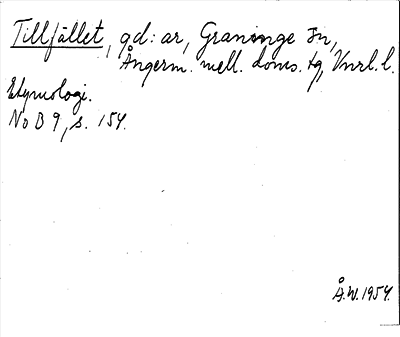 Tillfället, gd: ar, Graninge sn,
Ångerm. mell. doms. tg, Vnrl. l.
Etymologi.
No B 9, s. 154.
Å.W. 1954.